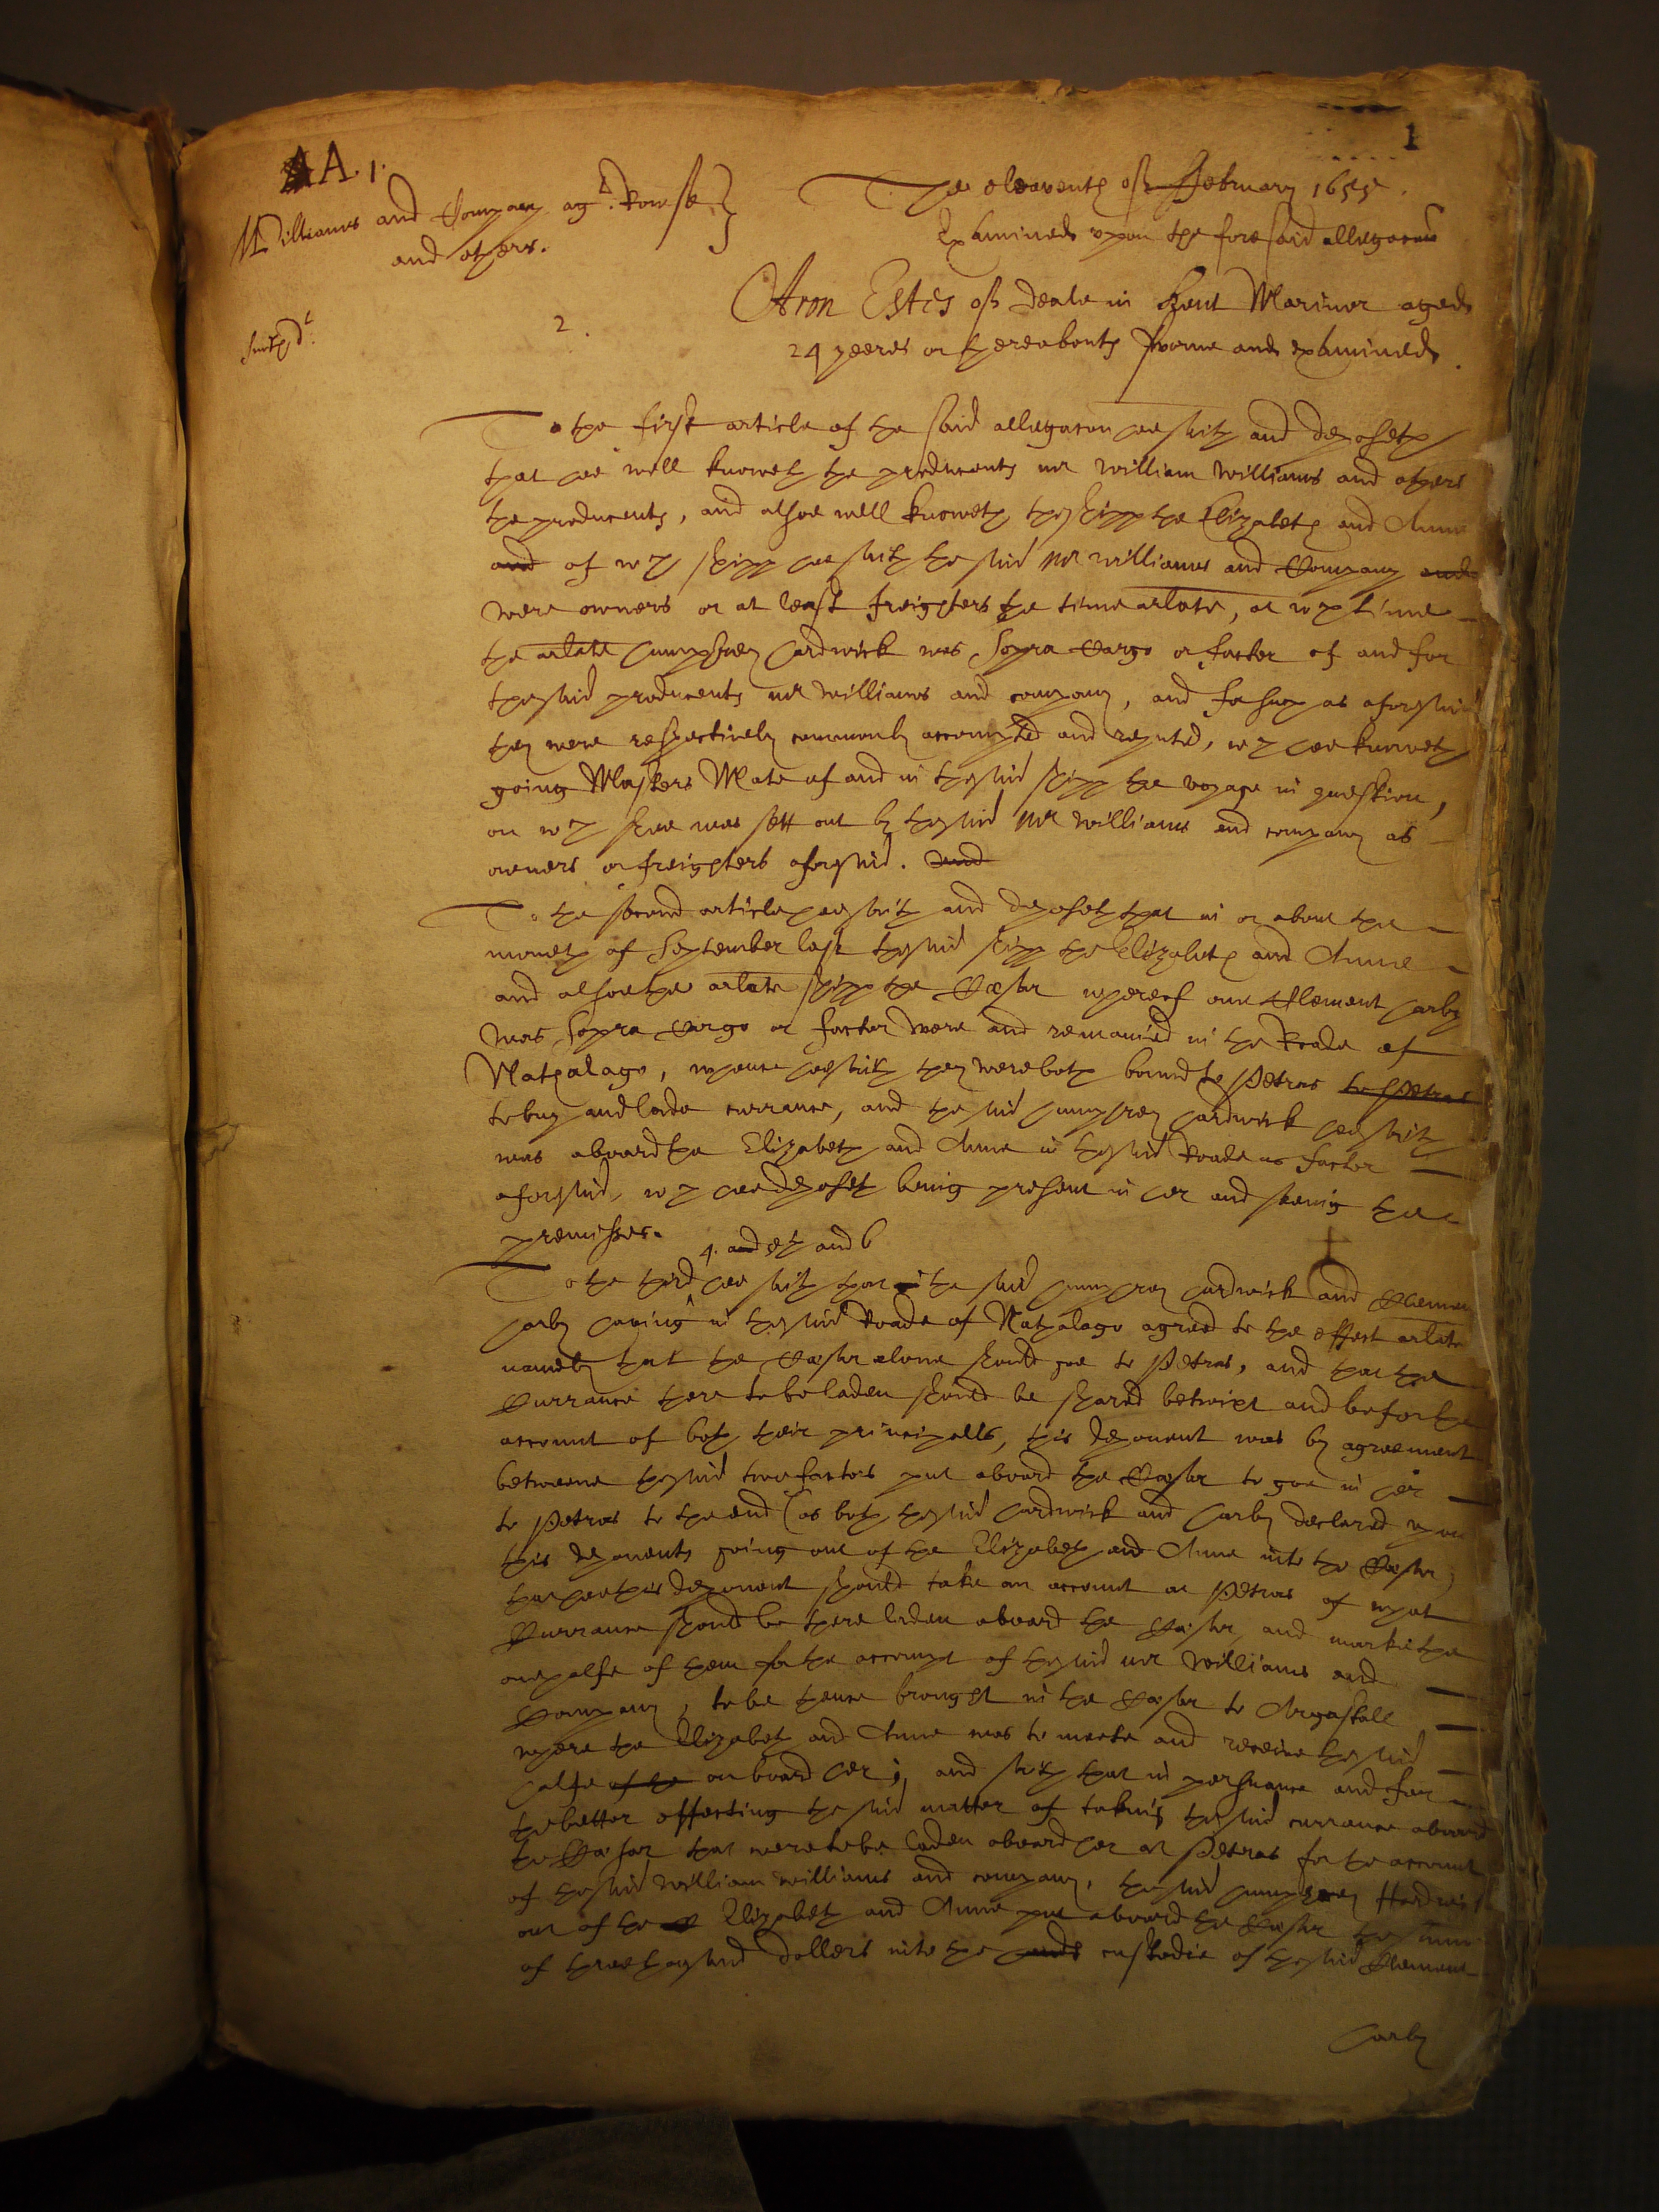 AA. 1.
1
The eleaventh of February 1655.
Williams and Company agt. Rowse
and others.
Examined upon the foresaid allegacon
Smith dt.
2.
Aron Estis of Deale in Kent Mariner aged
24 yeeres or thereabouts sworne and examined.
To the first article of the said allegacon hee saith and deposeth
that hee well knoweth the producents mr William Williams and others
the producents, and alsoe well knoweth the shipp the Elizabeth and Anne
and of wch shipp hee saith the said Mr Williams and Company and
were owners or at least freighters the time arlate, at wch time
the arlate Humphrey Hardwick was Sopra Cargo or factor of and for
the said producents mr Williams and company, and for such as aforesaid
they were respectively commonly accompted and reputed, wch hee knoweth
going Masters Mate of and in the said shipp the voyage in question,
on wch shee was sett out by the said Mr Williams and company as
owners or freighters aforesaid. And
To the second article hee saith and deposeth that in or about the
moneth of September last the said shipp the Elizabeth and Anne
and alsoe the arlate shipp the Cæsar whereof one Clement Harby
was Sopra Cargo or factor were and remained in the Roade of
Nathalago, whence hee saith they were both bound to Petras to Petras
to buy and lade currance, and the said Humphrey Hardwick hee saith
was aboard the Elizabeth and Anne in the said Roade as factor
aforesaid, wch hee deposeth being present in her and seeing the
premisses.
4. and 5th and 6
To the third hee saith that the said Humphrey Hardwick and Clement
Harby having in the said Roade of Nathalago agreed to the effect arlate
namely that the Cæsar alone should goe to Petras, and that the
Currance there to be laden should be shared betwixt and be for the
account of both their principalls, this deponent was by agreement
betweene the said two factors put aboard the Cæsar to goe in her
to Petras to the end (as both the said Hardwick and Harby declared upon
this deponents going out of the Elizabeth and Anne into the Cæsar)
that hee this deponent should take an account at Petras of what
Currance should be there laden aboard the Cæsar, and marke the
one halfe of them for the accompt of the said mr Williams and
Company, to be thence brought in the Cæsar to Argastall
where the Elizabeth and Anne was to meete and receive the said
halfe of the on board her, and saith that in persuance and for
the better effecting the said matter of taking the said currance aboard
the Cæsar that were to be laden aboard her at Petras for the account
of the said William Williams and company, the said Humphrey Hardwick
out of the Elizabeth and Anne put aboard the Cæsar the summe
of three thousand dollers into the hands custodie of the said Clement
Harby